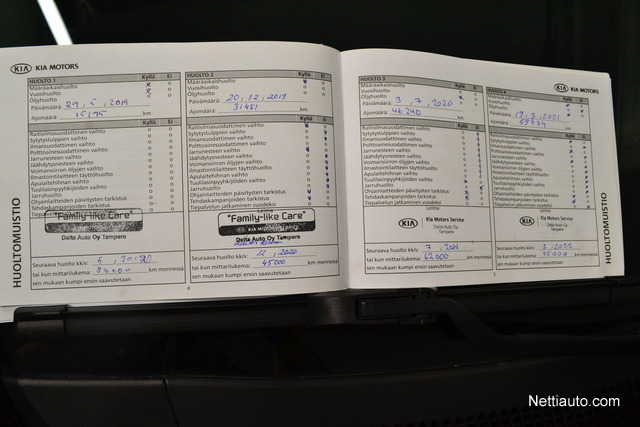 KIA KIA MOTORS
HUOLTOMUISTIO
HUOLTO 1 Kyllä Ei
Määräaikaishuolto
Vuosihuolto
Öljyhuolto
Päivämäärä: 5, 2019
Ajomäärä: 15175 km
Raitisilmasuodattimen vaihto
Sytytystulppien vaihto
Ilmansuodattimen vaihto
Polttoainesuodattimen vaihto
Jarrunesteen vaihto
Jäähdytysnesteen vaihto
Voimansiirron öljyjen vaihto
Ilmastointilaitteen täyttöhuolto
Apulaitehihnan vaihto
Tuulilasinpyyhkijöiden vaihto
Jarruhuolto
Ohjainlaitteiden päivitysten tarkistus
Tehdaskampanjoiden tarkistus
Tiepalvelun
"Family-like Care"
KIA MOTORS SERVICE
Delta Auto Oy Tampere
Seuraava huolto kk/v: 5, 2020
tai kun mittarilukema: km mennessä
sen mukaan kumpi ensin saavutetaan
HUOLTO 2 Kyllä Ei
Määräaikaishuolto
Vuosihuolto
Öljyhuolto
Päivämäärä: 20, 12, 2019
Ajomäärä: 31481 km
Raitisilmasuodattimen vaihto
Sytytystulppien vaihto
Ilmansuodattimen vaihto
Polttoainesuodattimen vaihto
Jarrunesteen vaihto
Jäähdytysnesteen vaihto
Voimansiirron öljyjen vaihto
Ilmastointilaitteen täyttöhuolto
Apulaitehihnan vaihto
Tuulilasinpyyhkijöiden vaihto
Jarruhuolto
Ohjainlaitteiden päivitysten tarkistus
Tehdaskampanjoiden tarkistus
"Family-like Care"
KIA MOTORS SERVICE
Delta Auto Oy Tampere
Seuraava huolto kk/v: 12, 2020
tai kun mittarilukema: 45000 km mennessä
sen mukaan kumpi ensin saavutetaan
4
HUOLTO 3 Kyllä Ei
Määräaikaishuolto
Vuosihuolto
Öljyhuolto
Päivämäärä: 3, 7, 2020
Ajomäärä: 46240 km
Raitisilmasuodattimen vaihto
Sytytystulppien vaihto
Ilmansuodattimen vaihto
Polttoainesuodattimen vaihto
Jarrunesteen vaihto
Jäähdytysnesteen vaihto
Voimansiirron öljyjen vaihto
Ilmastointilaitteen täyttöhuolto
Apulaitehihnan vaihto
Tuulilasinpyyhkijöiden vaihto
Jarruhuolto
Ohjainlaitteiden päivitysten tarkistus
Tehdaskampanjoiden tarkistus
Tiepalvelun jatkaminen vuodeksi
Leima
KIA Kia Motors Service
Delta Auto Oy
Tampere
Seuraava huolto kk/v: 7, 2021
tai kun mittarilukema: 62000 km mennessä
sen mukaan kumpi ensin saavutetaan
KIA KIA MOTORS
HUOLTO 4 Kyllä Ei
Määräaikaishuolto
Vuosihuolto
Öljyhuolto
Päivämäärä: 19, 3, 2021
Ajomäärä: 59734 km
Raitisilmasuodattimen vaihto
Sytytystulppien vaihto
Ilmansuodattimen vaihto
Polttoainesuodattimen vaihto
Jarrunesteen vaihto
Jäähdytysnesteen vaihto
Voimansiirron öljyjen vaihto
Ilmastointilaitteen täyttöhuolto
Apulaitehihnan vaihto
Tuulilasinpyyhkijöiden vaihto
Jarruhuolto
Ohjainlaitteiden päivitysten tarkistus
Tehdaskampanjoiden tarkistus
Tiepalvelun jatkaminen vuodeksi
Leima
KIA Kia Motors Service
Delta Auto Oy
Tampere
Seuraava huolto kk/v: 3, 2022
tai kun mittarilukema: 75000 km mennessä
sen mukaan kumpi ensin saavutetaan
5
HUOLTOMUISTIO
Nettiauto.com